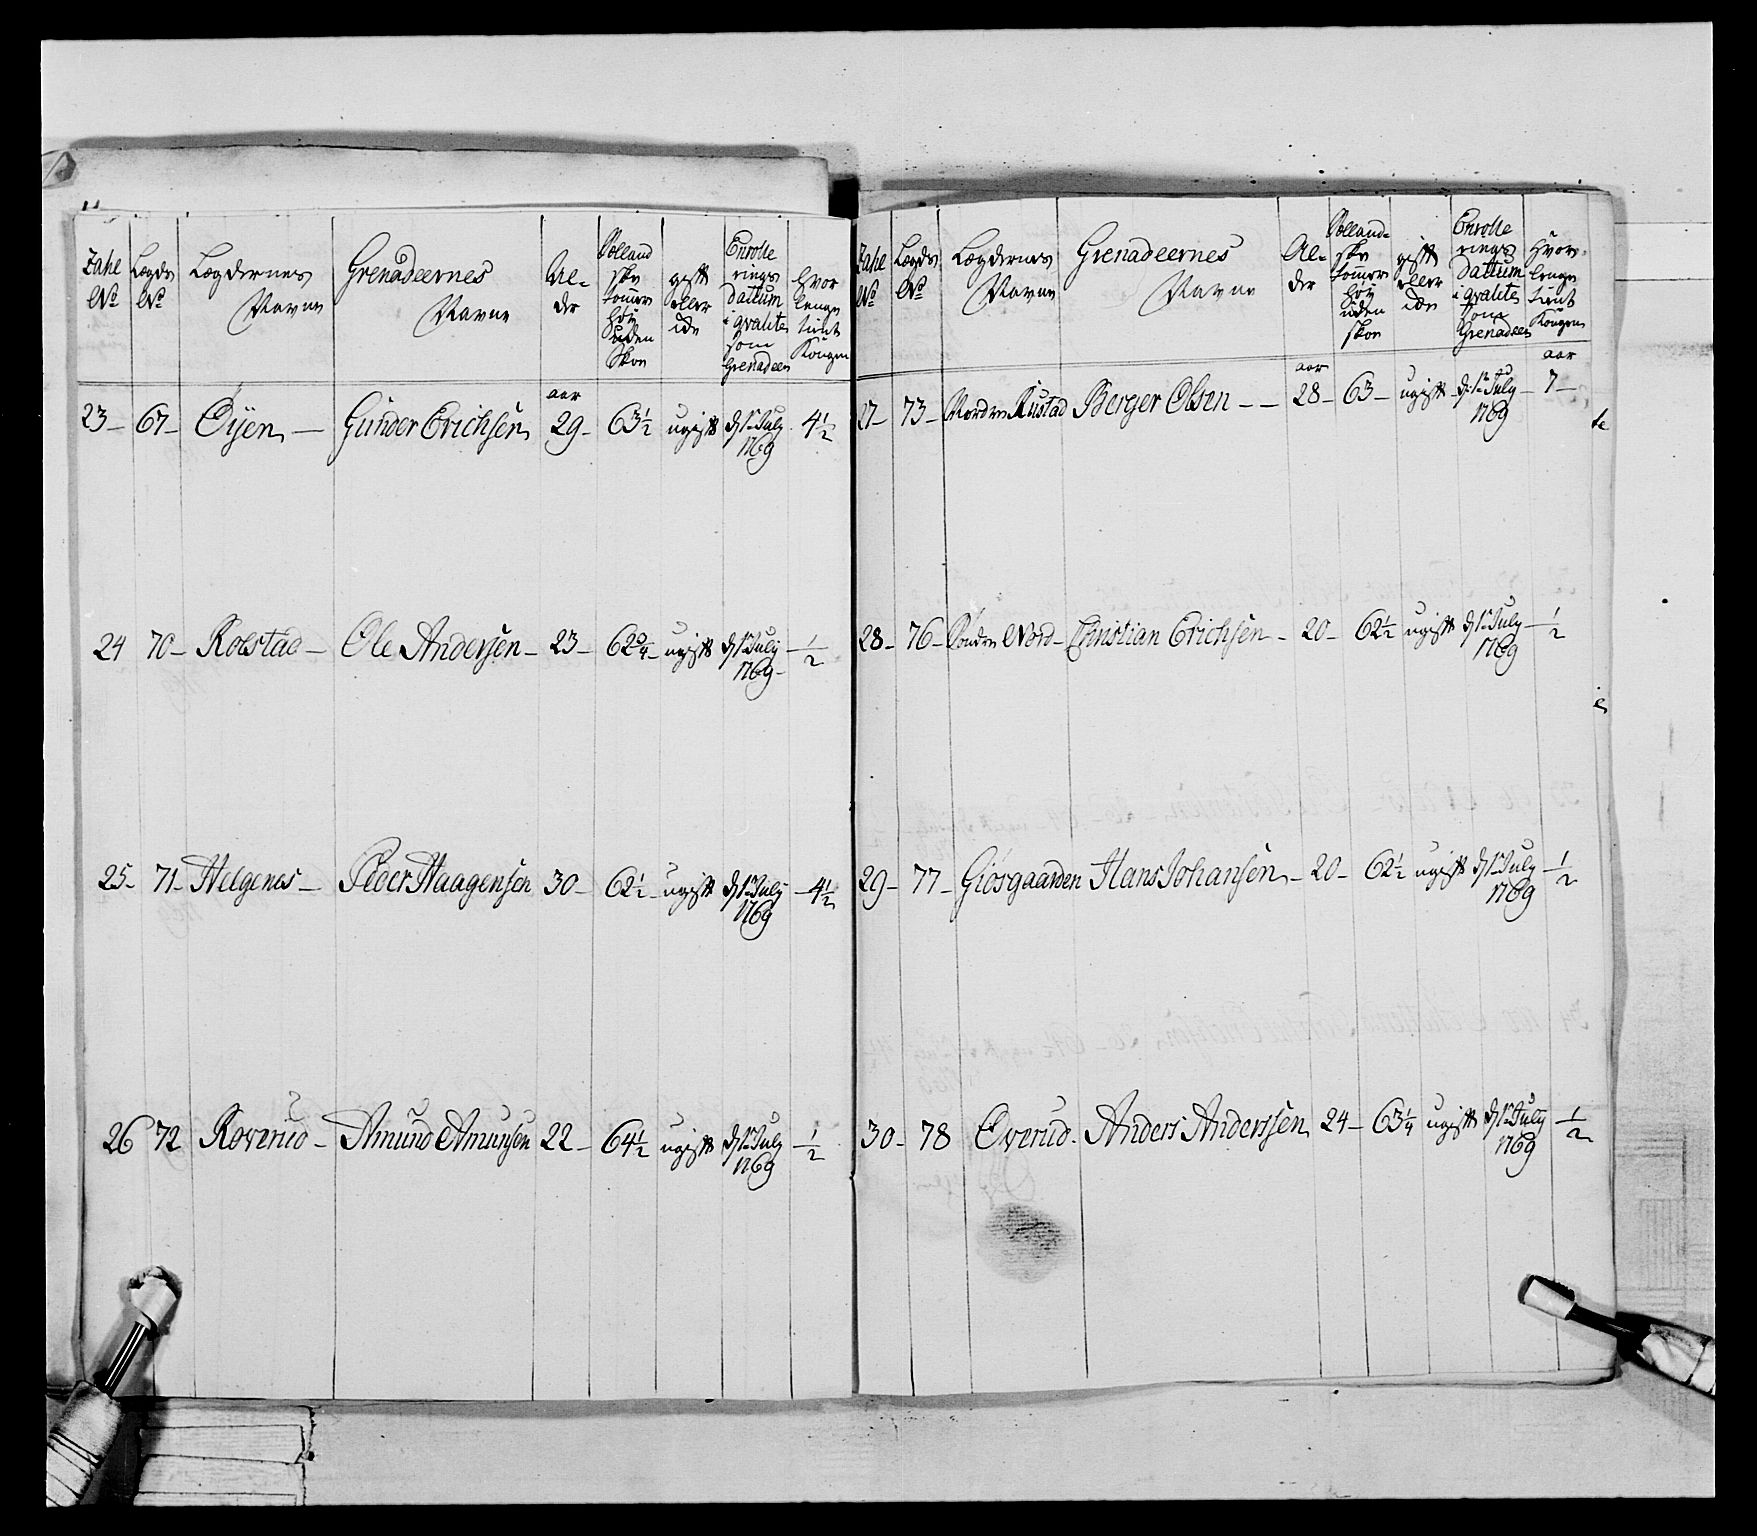 Zahl No
Lægds No
Lægdernes Navne
Grenadeernes Navne
Al- der
Holland ske tommer høy uden Skoe
gift eller ide
Enrolle rings dattum i qvalite som Grenadeer
Hvor lenge tient Kongen
23 – 67 – Oyen – Gunder Erichsen aar 29 – 63½ ugift d 1te July 1769 4½
24 70 – Rolstad – Ole Andersen – 23 – 62¾ – ugift d 1te July 1769 – ½
25 – 71 – Helgenes – Peder Haagensen 30 – 62½ – ugift d 1te July 1769 – 4½
26 72 Roverud – Amund Amunsen 22 – 64½ ugift d 1te July 1769 – ½
Zahl No
Lægds No
Lægdernes Navne
Grenadeernes Navne
Al- der
Holland- ske tommer høy uden skoe
gift eller ide
Enrolle rings dattum i qvalite som Grenadeer
Hvor- lenge tient Kongen
27 – 73 – Nordre Rustad Berger Olsen – – aar 28 – 63 – ugift – d 1te July 1769 – aar 7 –
28 – 76 – Søndre Nord – Christian Erichsen – 20 – 62½ ugift d 1te July 1769 – ½
29 – 77 – Giøsgaarden Hans Johansen – 20 – 62½ ugift d 1te July 1769 – ½
30 – 78 Overud – Anders Anderssen 24 – 63¼ ugift d 1te July 1769 – ½